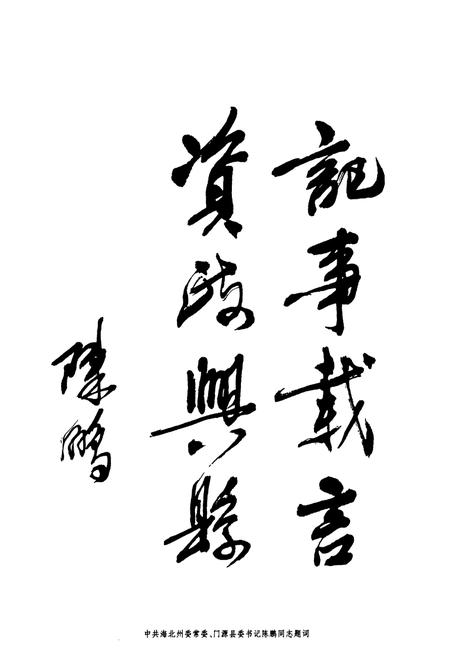 記事載言
資政興縣
陈鹏
中共海北州委常委、门源县委书记陈鹏同志题词